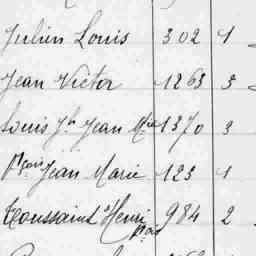 Julien Louis 302 1
Jean Victor 1263 3
Louis Jh Jean Mie 1370 3
Fçois Jean Marie 123 1
Toussaint Henri 984 2